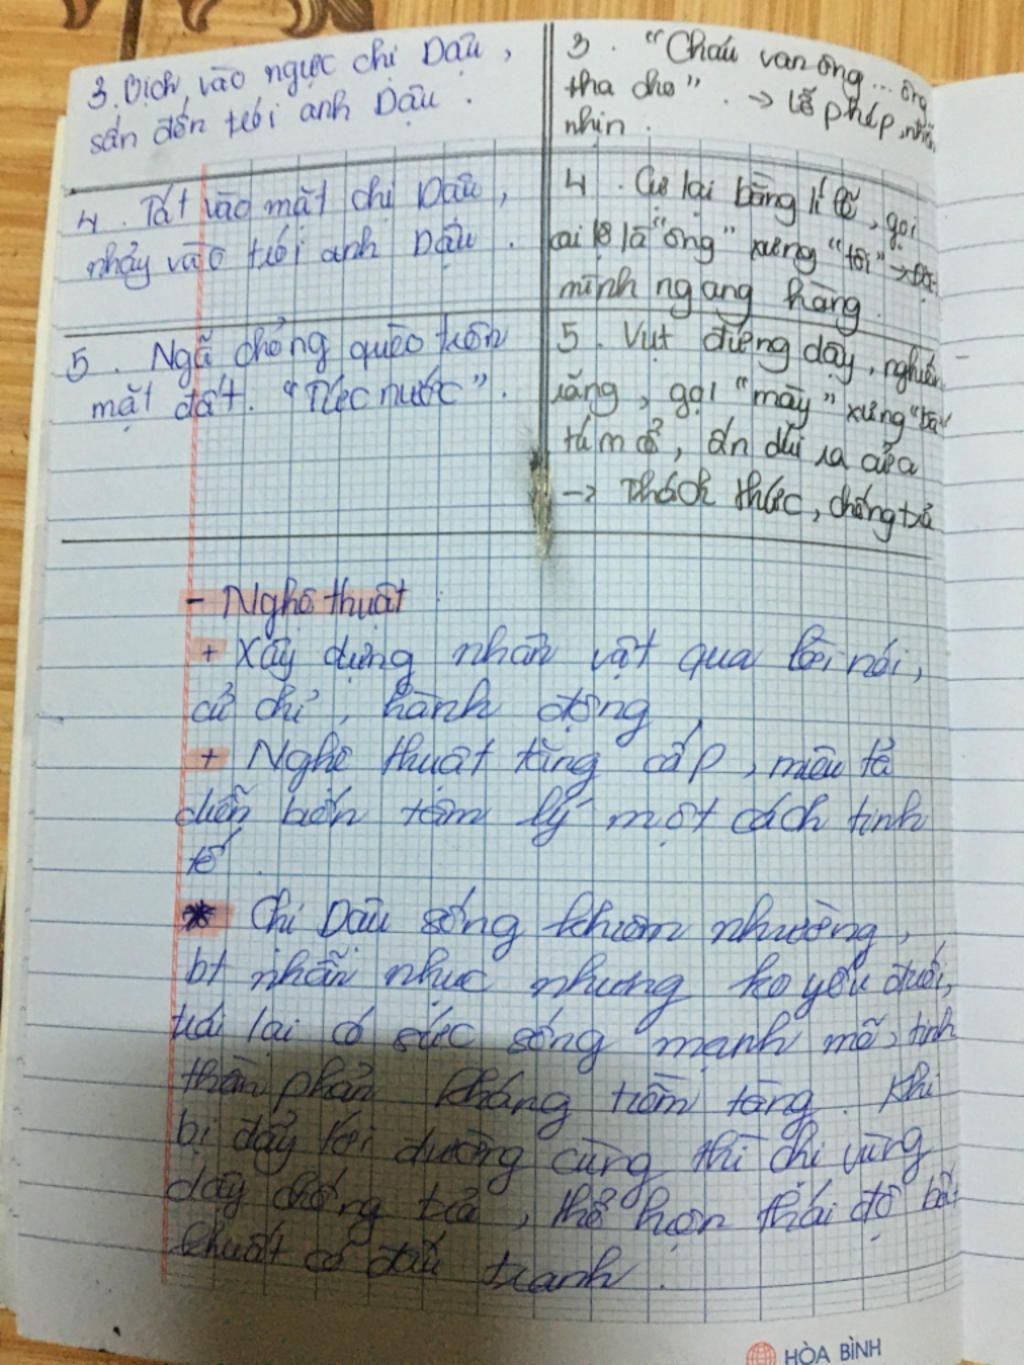 3. Bịch vào ngực chị Dậu,
sấn đến trói anh Dậu.
3. "Cháu van ông... ông
tha cho" → lễ phép, nhẫn
nhịn.
4. Tát vào mặt chị Dậu,
nhảy vào trói anh Dậu.
4. Cự lại bằng lí lẽ, gọi
cai lệ là "ông" xưng "tôi" →
mình ngang hàng.
5. Ngã chỏng quèo trên
mặt đất. "Tức nước".
5. Vụt đứng dậy, nghiến
răng, gọi "mày" xưng "bà"
túm cổ, ấn dúi ra cửa
→ Thách thức, chống trả
- Nghệ thuật:
+ Xây dựng nhân vật qua lời nói,
cử chỉ, hành động,
+ Nghệ thuật tăng cấp, miêu tả
diễn biến tâm lý một cách tinh
tế.
* Chị Dậu sống khiêm nhường,
bt nhẫn nhục nhưng ko yếu đuối,
trái lại có sức sống mạnh mẽ, tinh
thần phản kháng tiềm tàng. Khi
bị đẩy tới đường cùng thì chị vùng
dậy chống trả, thể hiện thái độ bất
khuất có đấu tranh.
HÒA BÌNH